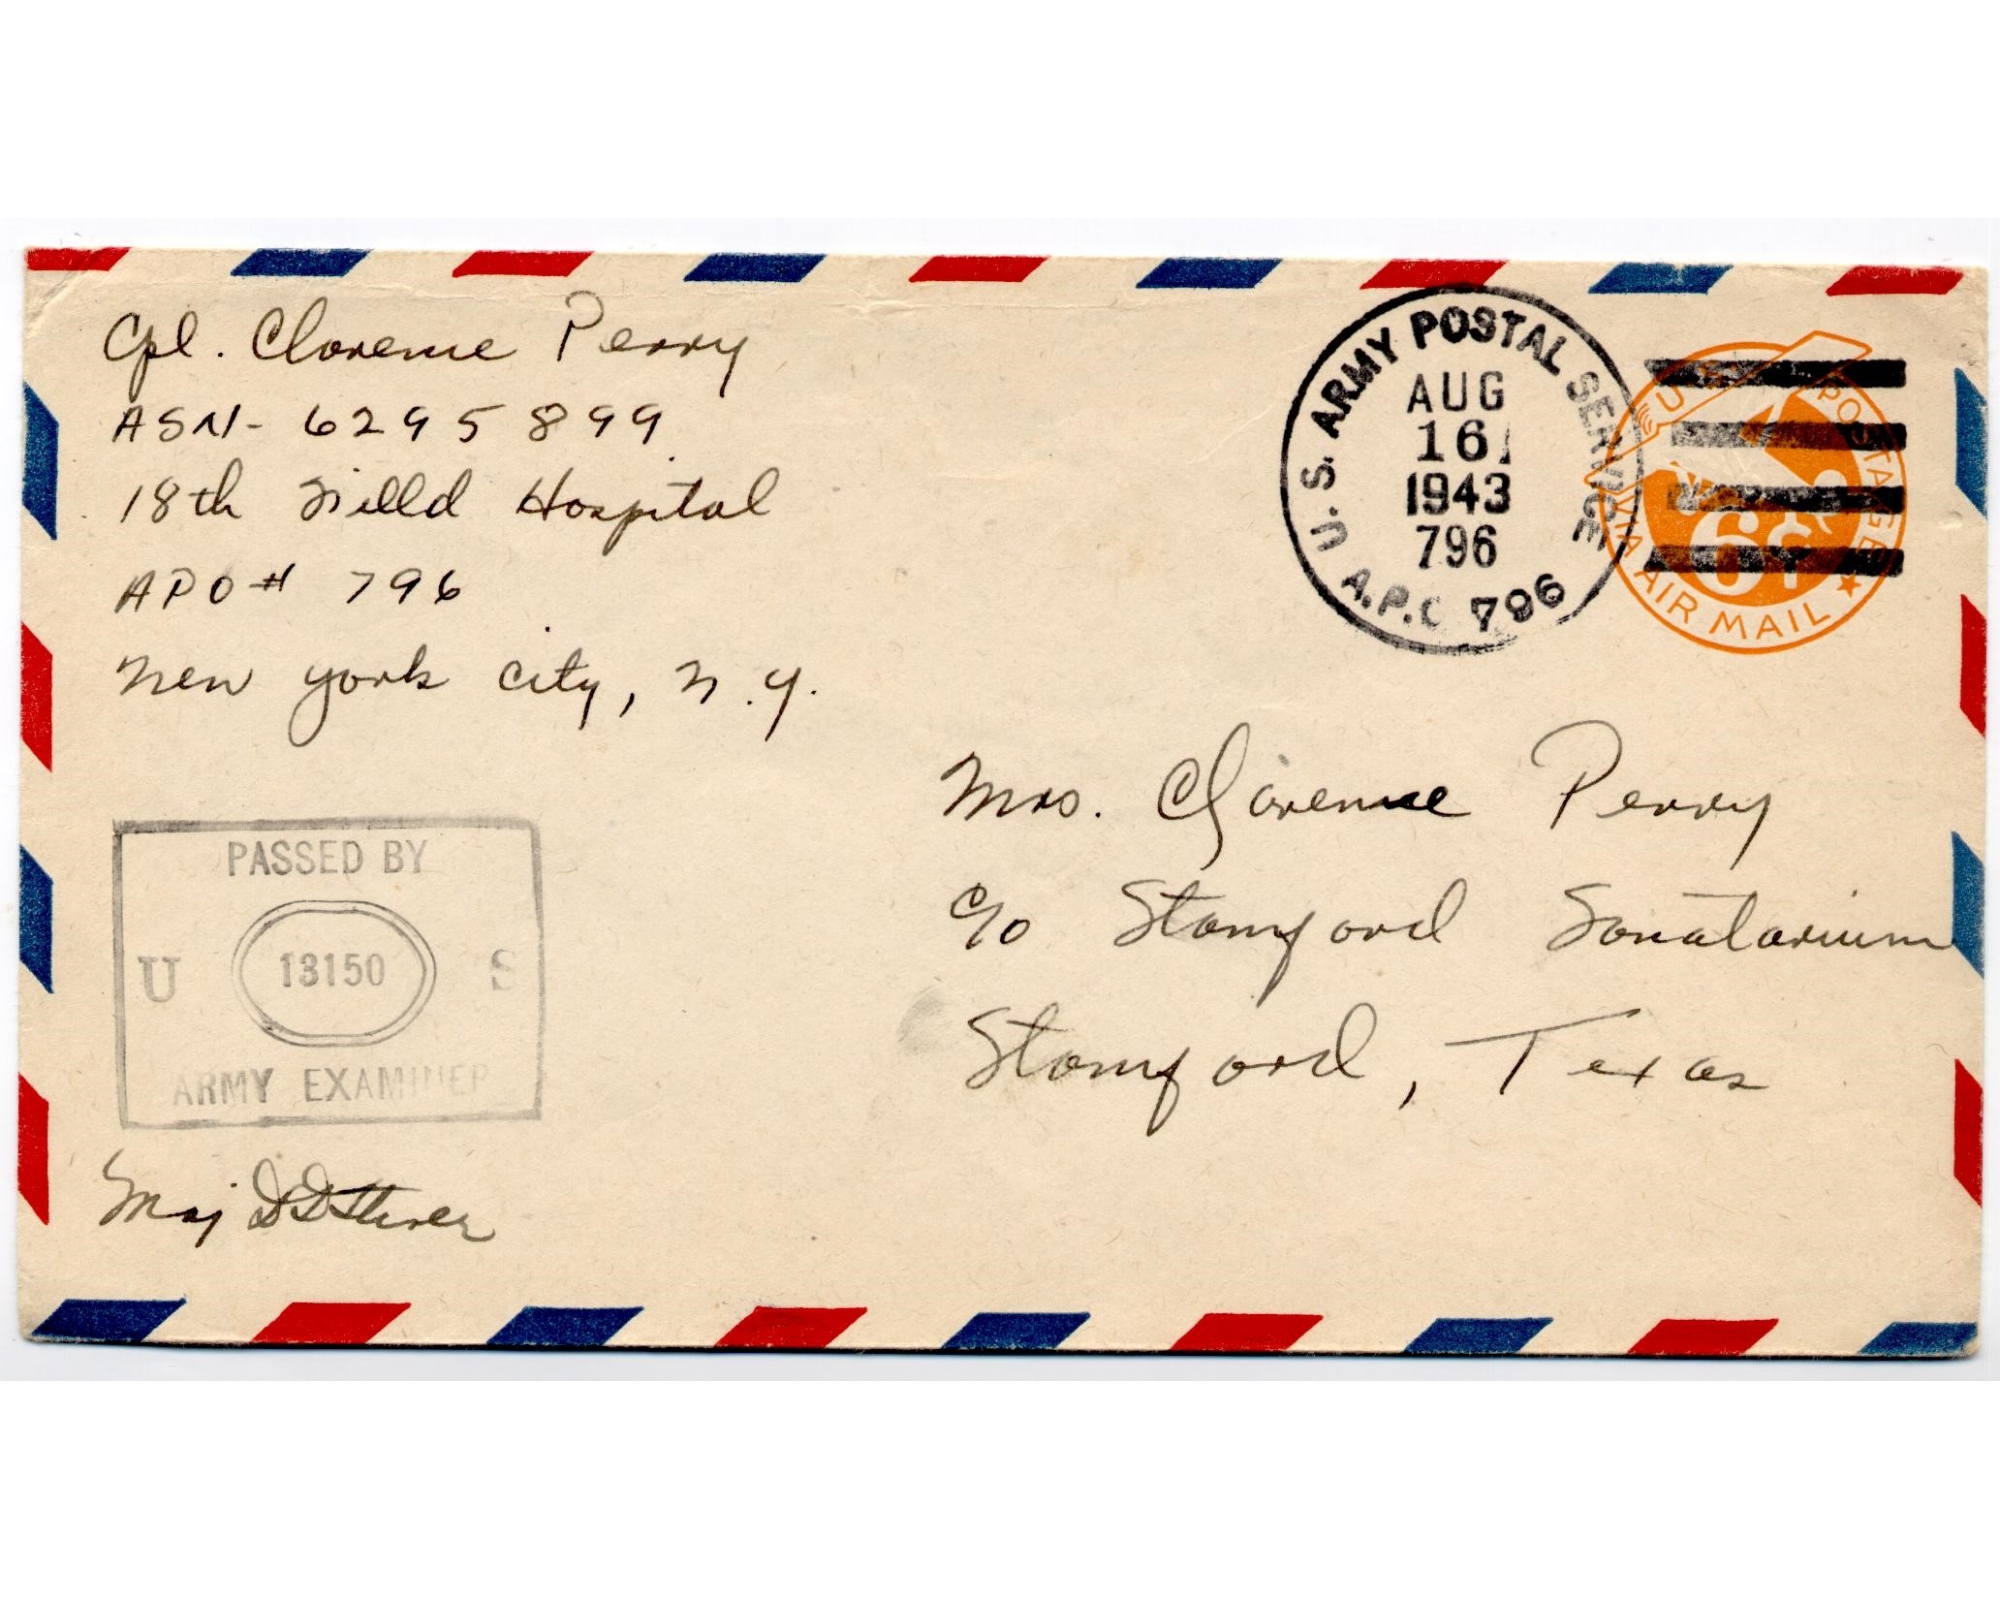 Cpl. Clarence Perry
ASN- 6295899
18th Fielld Hospital
APO# 796
New York City, N.Y.
U.S. ARMY POSTAL SERVICE
AUG
16
1943
796
A.P.O. 796
U.S. POSTAGE
6¢
VIA AIR MAIL
Mrs. Clarence Perry
c/o Stamford Sanatarium
Stamford, Texas
PASSED BY
U 13150 S
ARMY EXAMINER
Maj